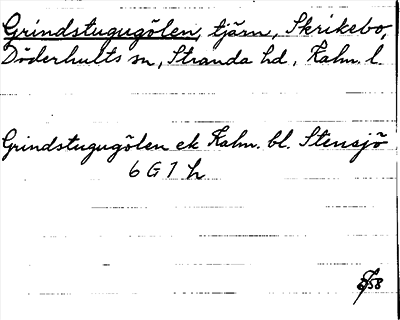 Grindstugugölen, tjärn, Skrikebo,
Döderhults sn, Stranda hd, Kalm. l.
Grindstugugölen ek Kalm. bl. Stensjö
6 G 7 h
58